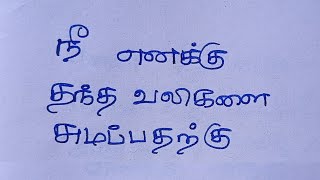 நீ எனக்கு
தந்த வலிகளை
சுமப்பதற்கு